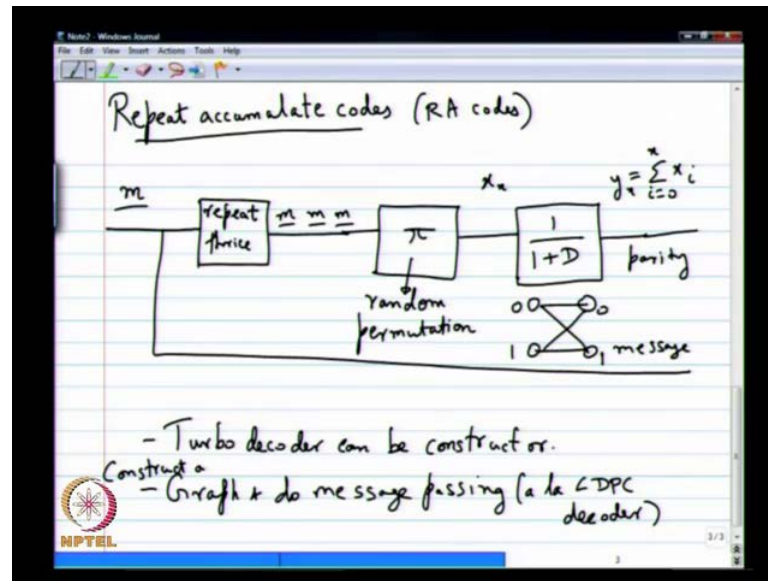 Note2 - Windows Journal
File Edit View Insert Actions Tools Help
Repeat accumulate codes (RA codes)
m
repeat
thrice
m m m
π
random
permutation
xₙ
1
1+D
yₙ = Σ xᵢ
n
i=0
parity
0 0
1 1
message
- Turbo decoder can be constructor.
Construct a
- Graph & do message passing (a la LDPC
decoder)
NPTEL
3/3
3